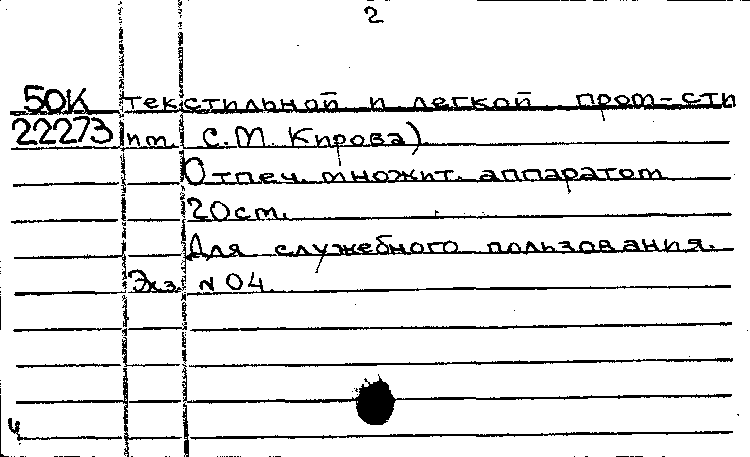 2
50К текстильной и легкой пром-сти
22273 им. С.М. Кирова).
Отпеч. множит. аппаратом
20см.
Для служебного пользования.
Экз. N 04.
4